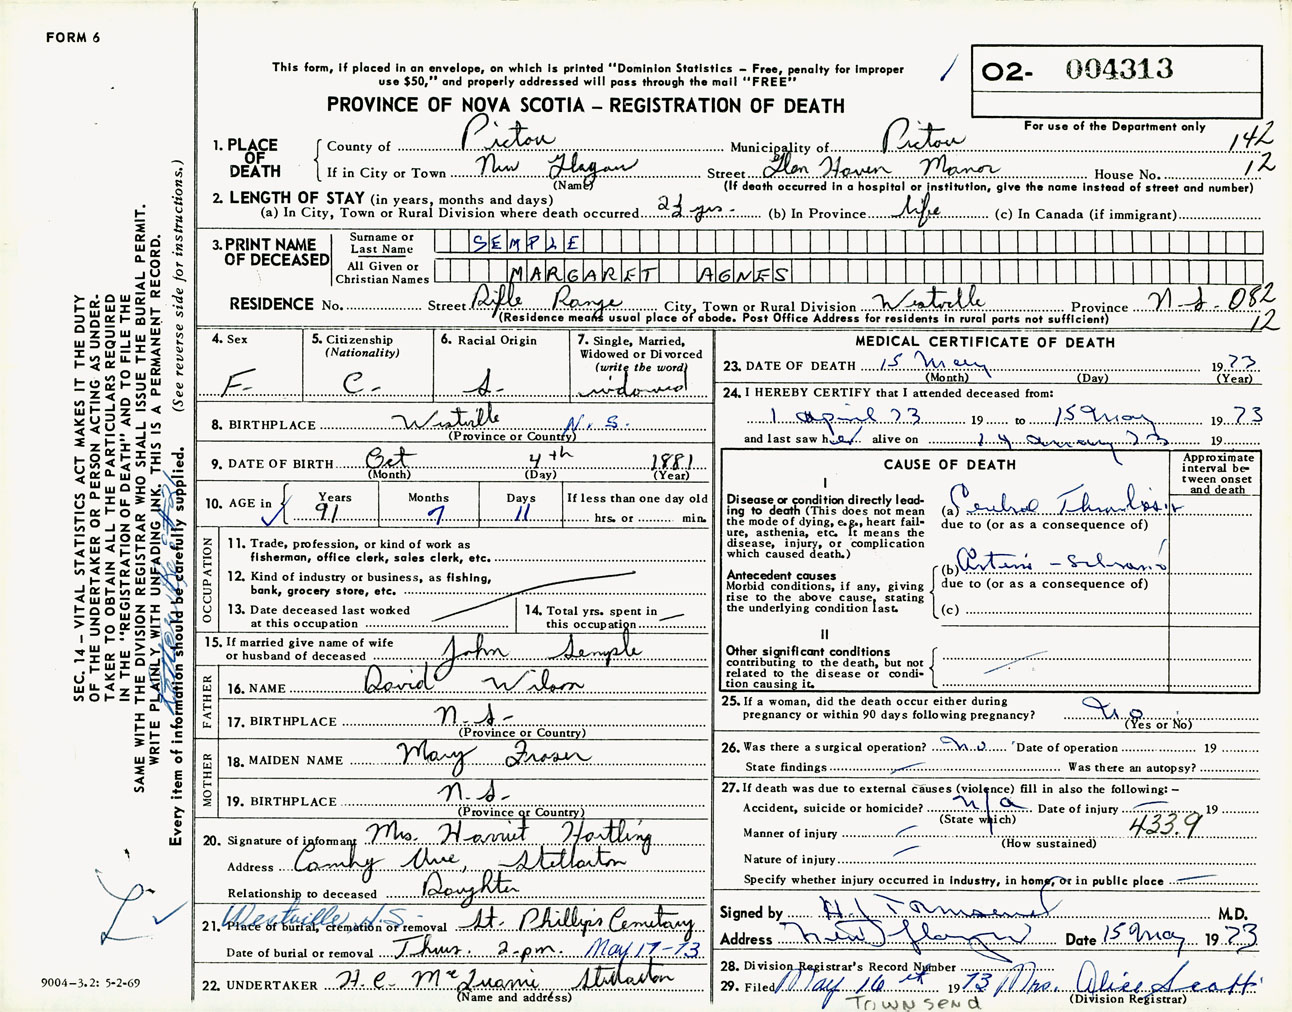 FORM 6
This form, if placed in an envelope, on which is printed "Dominion Statistics – Free, penalty for improper
use $50," and properly addressed will pass through the mail "FREE"
PROVINCE OF NOVA SCOTIA – REGISTRATION OF DEATH
O2- 004313
For use of the Department only
142
12
1. PLACE OF DEATH
County of Pictou Municipality of Pictou
If in City or Town New Glasgow Street Glen Haven Manor House No.
(Name) (If death occurred in a hospital or institution, give the name instead of street and number)
2. LENGTH OF STAY (in years, months and days)
(a) In City, Town or Rural Division where death occurred 2½ yrs. (b) In Province life (c) In Canada (if immigrant)
3. PRINT NAME OF DECEASED
Surname or Last Name SEMPLE
All Given or Christian Names MARGARET AGNES
RESIDENCE No. Street Rifle Range City, Town or Rural Division Westville Province N.S. 082
(Residence means usual place of abode. Post Office Address for residents in rural parts not sufficient) 12
4. Sex F.
5. Citizenship (Nationality) C.
6. Racial Origin S.
7. Single, Married, Widowed or Divorced (write the word) widowed
8. BIRTHPLACE Westville N.S.
(Province or Country)
9. DATE OF BIRTH Oct 4th 1881
(Month) (Day) (Year)
10. AGE in Years 91 Months 7 Days 11 If less than one day old
hrs. or min.
OCCUPATION
11. Trade, profession, or kind of work as
fisherman, office clerk, sales clerk, etc.
12. Kind of industry or business, as fishing,
bank, grocery store, etc.
13. Date deceased last worked
at this occupation
14. Total yrs. spent in
this occupation
15. If married give name of wife
or husband of deceased John Semple
FATHER
16. NAME David Wilson
17. BIRTHPLACE N.S.
(Province or Country)
MOTHER
18. MAIDEN NAME Mary Fraser
19. BIRTHPLACE N.S.
(Province or Country)
20. Signature of informant Mrs. Harriet Hartling
Address Ave, Stellarton
Relationship to deceased Daughter
Westville N.S.
21. Place of burial, cremation or removal St. Phillips Cemetary
Date of burial or removal Thurs. 2 p.m. May 17-73
22. UNDERTAKER H.C. Stellarton
(Name and address)
MEDICAL CERTIFICATE OF DEATH
23. DATE OF DEATH 15 May 1973
(Month) (Day) (Year)
24. I HEREBY CERTIFY that I attended deceased from:
1 april 73 19 to 15 May 1973
and last saw her alive on 73 19
CAUSE OF DEATH
Approximate interval between onset and death
I
Disease or condition directly lead-
ing to death (This does not mean
the mode of dying, e.g., heart fail-
ure, asthenia, etc. It means the
disease, injury, or complication
which caused death.)
(a) Cerebral Thrombosis
due to (or as a consequence of)
Antecedent causes
Morbid conditions, if any, giving
rise to the above cause, stating
the underlying condition last.
(b)
due to (or as a consequence of)
(c)
II
Other significant conditions
contributing to the death, but not
related to the disease or condi-
tion causing it.
25. If a woman, did the death occur either during
pregnancy or within 90 days following pregnancy? No
(Yes or No)
26. Was there a surgical operation? No Date of operation 19
State findings Was there an autopsy?
27. If death was due to external causes (violence) fill in also the following:–
Accident, suicide or homicide? n/a Date of injury 19
(State which) 433.9
Manner of injury
(How sustained)
Nature of injury
Specify whether injury occurred in industry, in home, or in public place
Signed by H J Townsend M.D.
Address New Glasgow Date 15 May 1973
28. Division Registrar's Record Number
29. Filed May 16th 1973 Mrs. Alice Scott
(Division Registrar)
TOWNSEND
SEC. 14 – VITAL STATISTICS ACT MAKES IT THE DUTY
OF THE UNDERTAKER OR PERSON ACTING AS UNDER-
TAKER TO OBTAIN ALL THE PARTICULARS REQUIRED
IN THE "REGISTRATION OF DEATH" AND TO FILE THE
SAME WITH THE DIVISION REGISTRAR WHO SHALL ISSUE THE BURIAL PERMIT.
WRITE PLAINLY, WITH UNFADING INK. THIS IS A PERMANENT RECORD.
Every item of information should be carefully supplied. (See reverse side for instructions.)
9004–3.2: 5-2-69